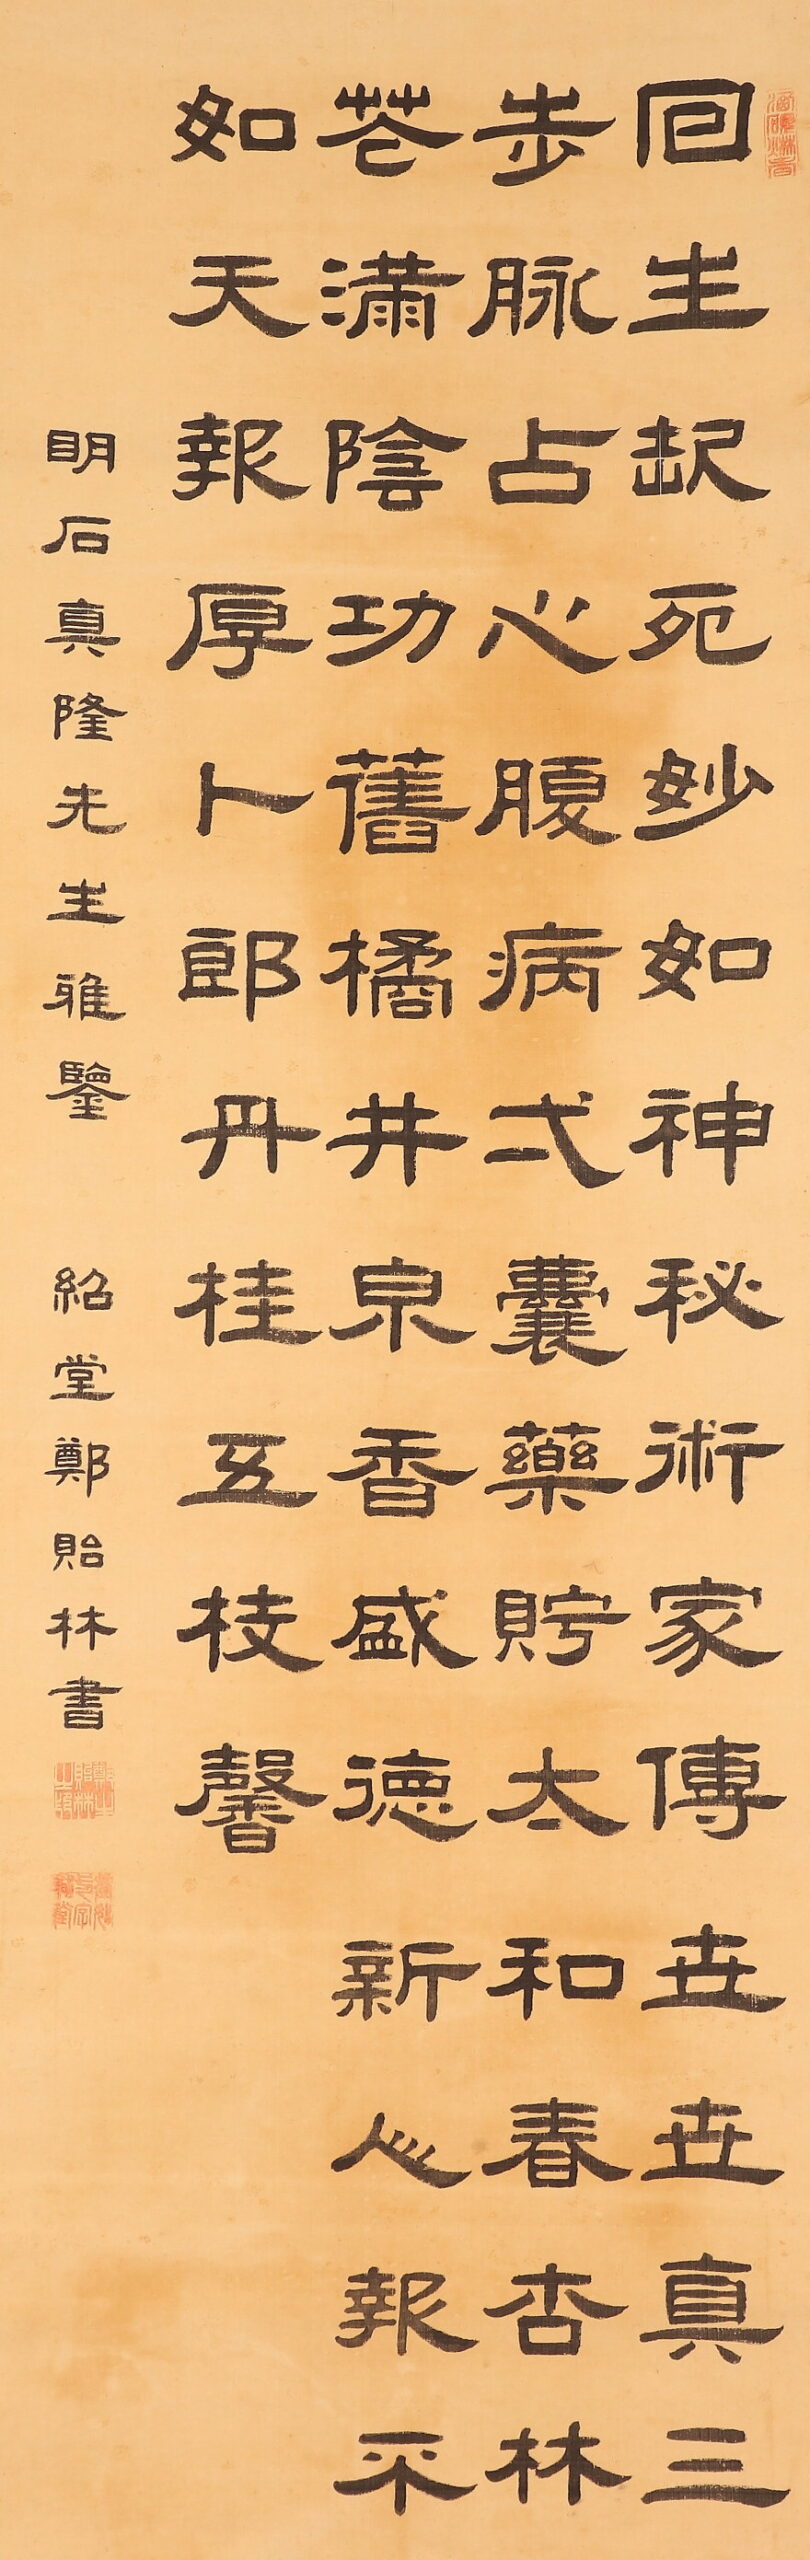 回生起死妙如神秘術家傳世世真三
步脉占心腹病弌囊藥貯太和春杏林
花滿陰功舊橘井泉香盛德新人報不
如天報厚卜郎丹桂五枝馨
明石真隆先生雅鑒 紹堂鄭貽林書